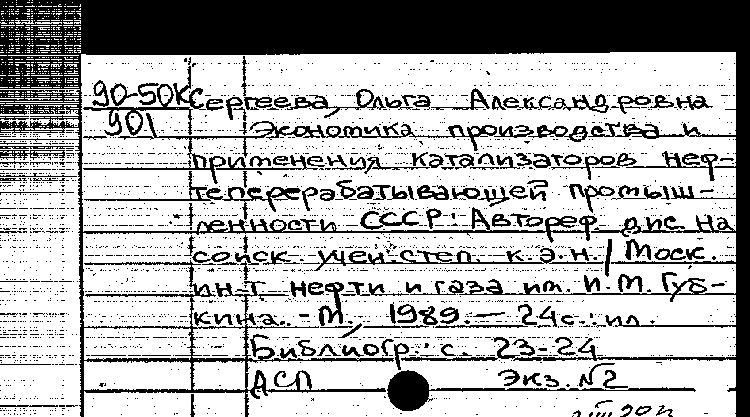 90-50К Сергеева, Ольга Александровна
901 Экономика производства и
применения катализаторов неф-
теперерабатывающей промыш-
ленности СССР: Автореф. дис. на
соиск. учен. степ. к.э.н. / Моск.
ин-т нефти и газа им. И.М. Губ-
кина. - М., 1989. — 24с.: ил.
Библиогр.: с. 23-24
АСП Экз. №2